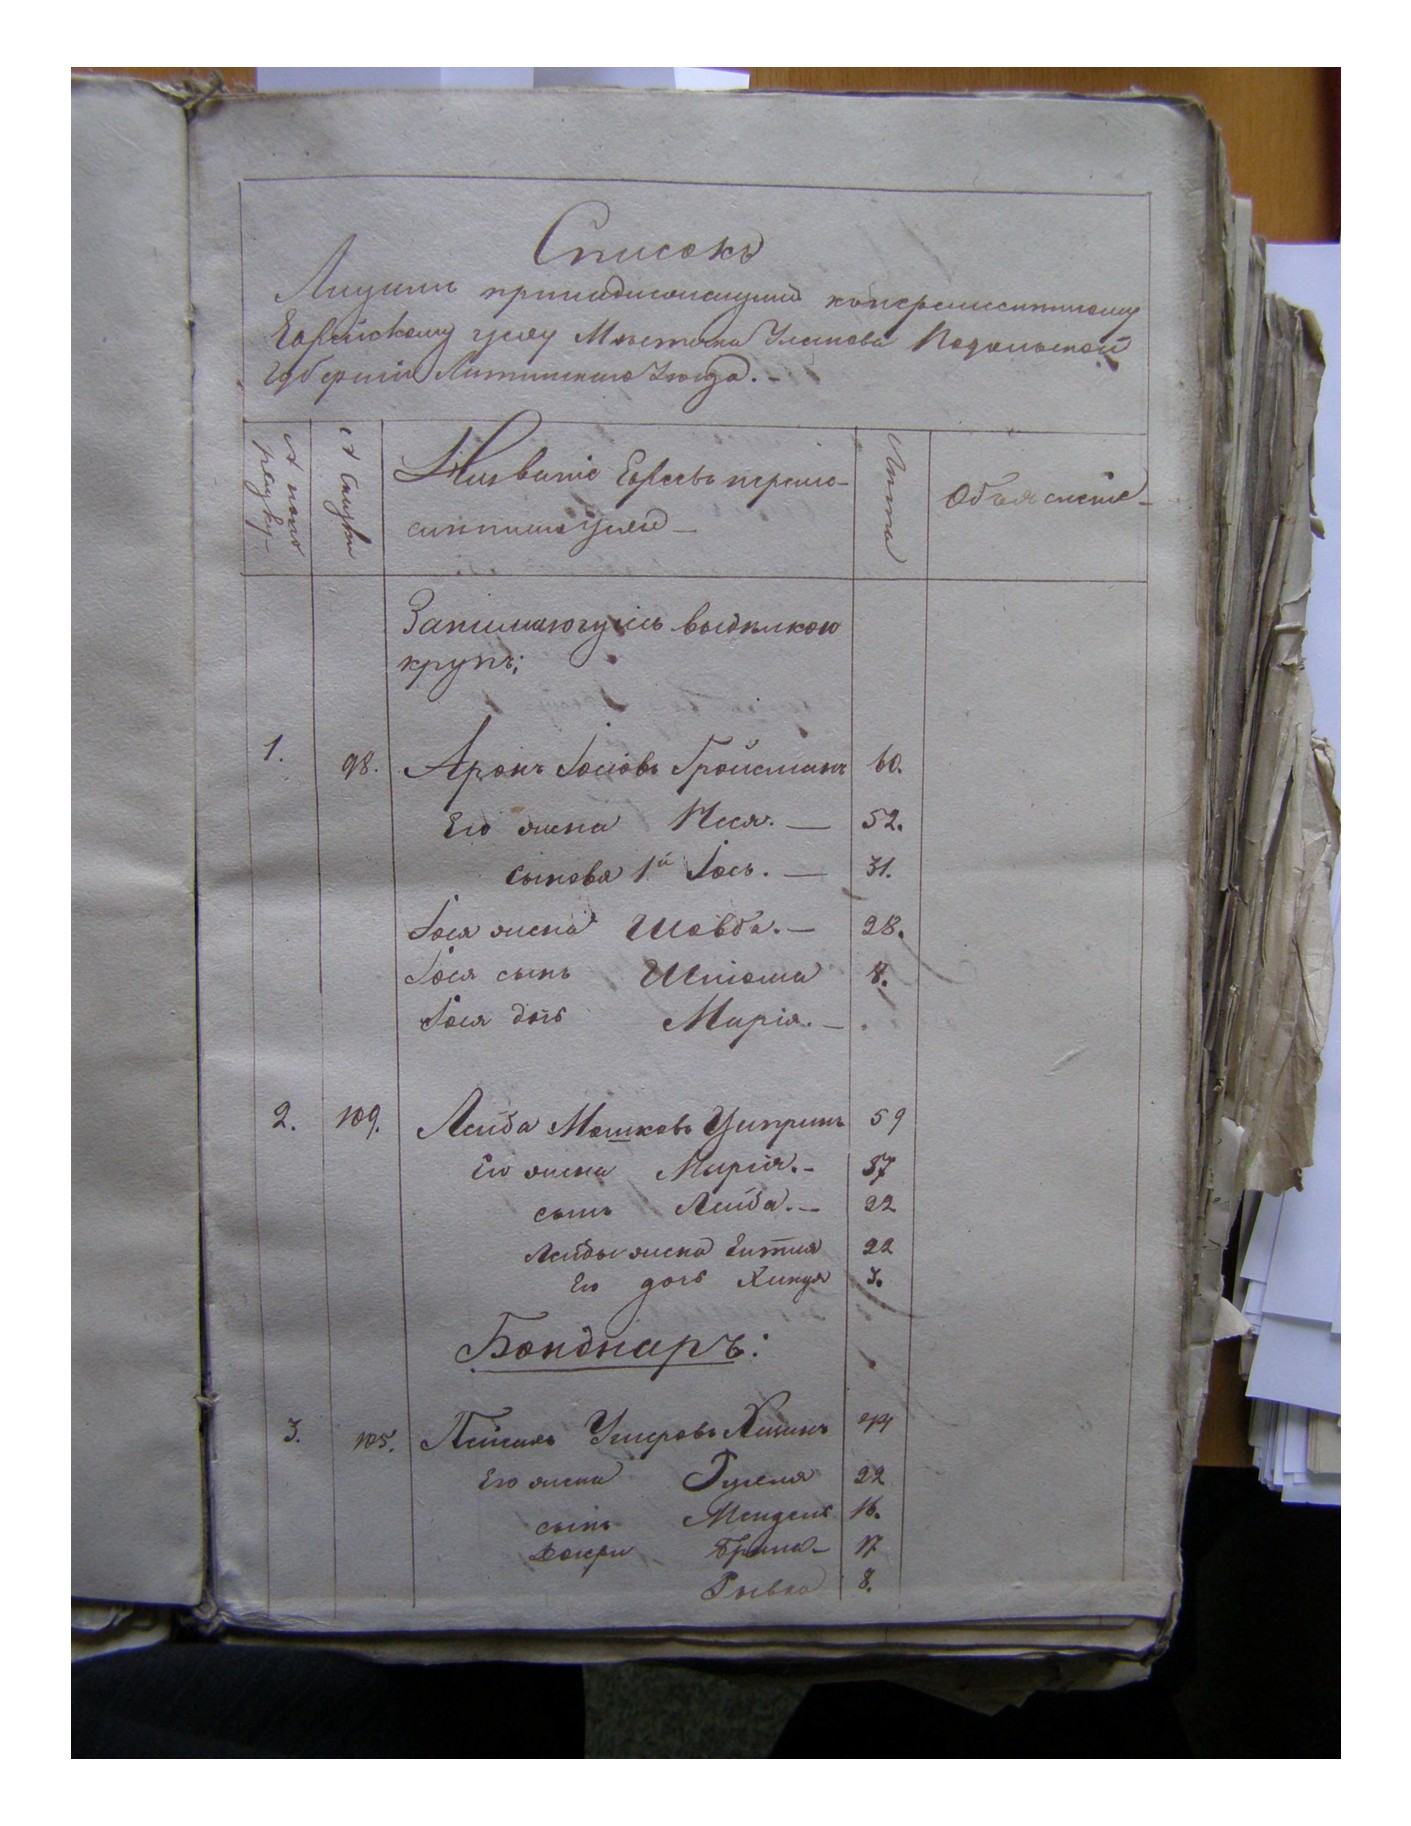 Списокъ
Лицамъ принадлежащимъ къ неремесленному
Еврейскому цеху Мѣстечка Уланова Подольской
Губерніи Литинскаго Уѣзда. –
№ по порядку –
№ Сказки
Названіе Евреевъ
Лѣта
Объясненіе –
Занимающіеся выдѣлкою
крупъ;
1. 98. Аронъ Іосіовъ Гройсманъ 60.
Его жена Песя. — 52.
сыновья 1й Іось. — 31.
Іося жена Шовба. — 28.
Іося сынъ Шліома 8.
Іося дочь Марія. —
2. 109. Лейба Мошковъ Ципринъ 59
Его жена Марія. – 37
сынъ Лейба. – 22
Лейбы жена Ентля 22
Его дочь Хинця 3.
Бондаръ:
3. 105. Пейсахъ 44
Его жена 22
сынъ Мендель 16.
Дочери Брана – 17
Рывка 8.